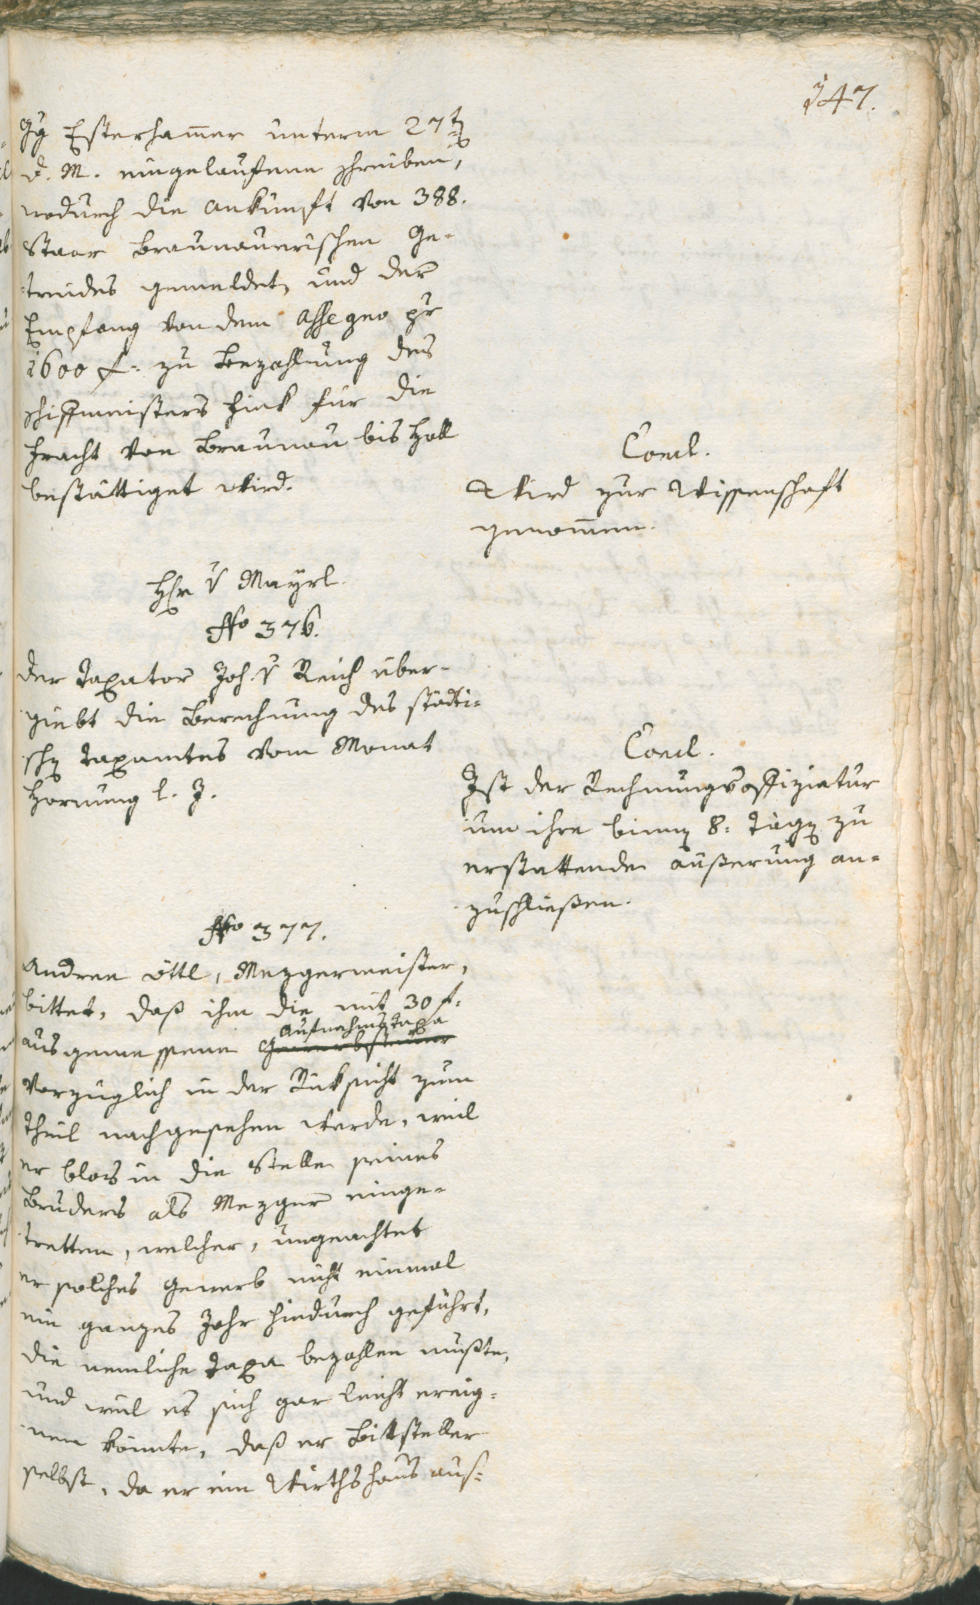 347.
Gg Esterhamer unterm 27t
d. M. eingelaufene schreiben,
wodurch die ankunft von 388.
Staar Braunauerischen Ge-
treides gemeldet, und der
Empfang von dem assegno pr
1600 f. zu Bezahlung des
schiffmeisters Fink für die
Fracht von Braunau bis Hall
bestättiget wird.
Concl.
Wird zur Wissenschaft
genommen.
Hr v Mayrl.
No 376.
Der Taxator Joh. v Reich über-
giebt die Berechnung des städti-
schen Taxamtes vom Monat
Hornung l. J.
Concl.
Ist der Rechnungsoffiziatur
um ihre binnen 8. Tägen zu
erstattende äußerung an-
zuschließen.
No 377.
Andree Öttl, Mezgermeister,
bittet, daß ihm die mit 30 f.
ausgemessene Gewerbsteuer aufnahmstaxa
vorzüglich in der Rücksicht zum
Theil nachgesehen werde, weil
er blos in die Stelle seines
Bruders als Mezger einge-
tretten, welcher, ungeachtet
er solches Gewerb nicht einmal
ein ganzes Jahr hindurch geführt,
die nemliche Taxa bezahlen mußte,
und weil es sich gar leicht ereig-
nen könnte, daß er Bittsteller
selbst, da er ein Wirthshaus aus-